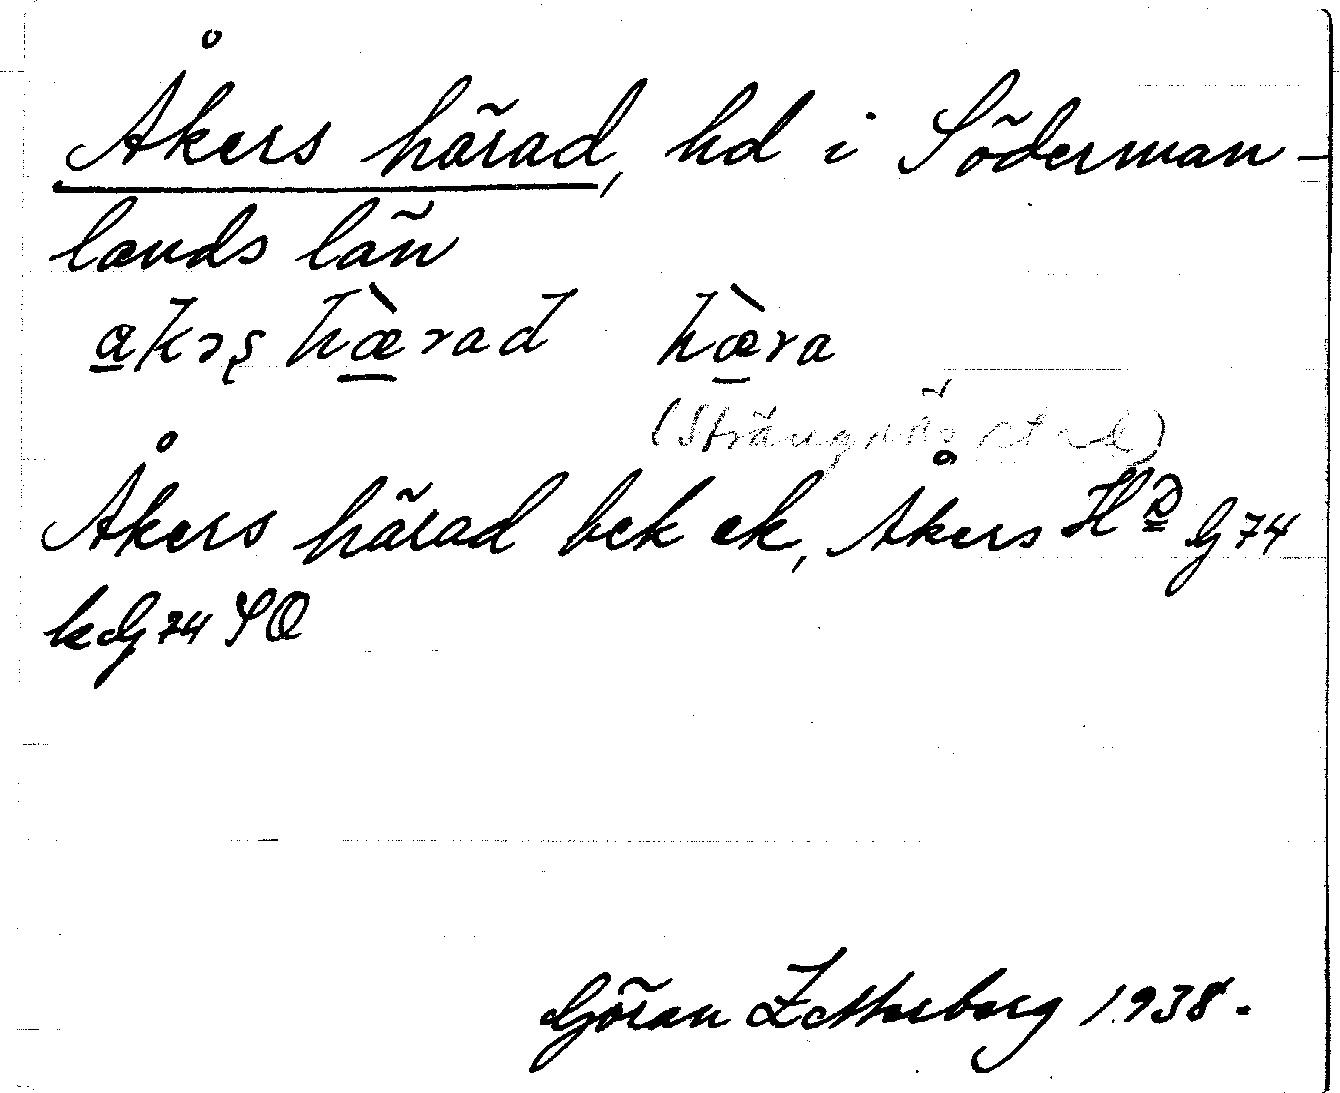 Åkers härad, hd i Söderman-
lands län
a̲kərs hæ̲̀rad hæ̲̀ra
(Strängnäs stad)
Åkers härad bek ek, Åkers H<u>d</u> G 74
k G 74 SO
Göran Zetterborg 1938.